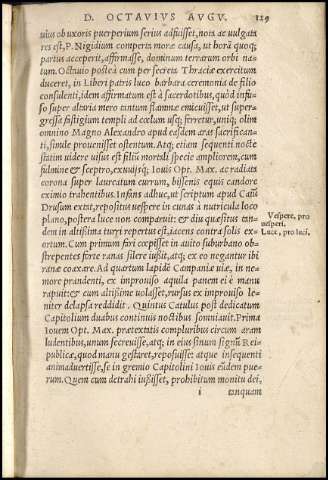 D. OCTAVIVS AVGV. 129
uius ob uxoris puerperium serius adfuisset, nota ac uulgata
res est, P. Nigidium comperta moræ causa, ut horā quoq;
partus acceperit, affirmasse, dominum terrarum orbi na-
tum. Octauio postea cum per secreta Thraciæ exercitum
duceret, in Liberi patris luco barbara ceremonia de filio
consulenti, idem affirmatum est à sacerdotibus, quòd infu-
so super altaria mero tantum flammæ emicuisset, ut super-
gressa fastigium templi ad cœlum usq; ferretur, uniq; olim
omnino Magno Alexandro apud easdem aras sacrificanti,
simile prouenisset ostentum. Atq; etiam sequenti nocte
statim uidere uisus est filiū mortali specie ampliorem, cum
fulmine & sceptro, exuuijsq; Iouis Opt. Max. ac radiata
corona super laureatum currum, bissenis equis candore
eximio trahentibus. Infans adhuc, ut scriptum apud Caiū
Drusum extat, repositus uespere in cunas à nutricula loco
plano, postera luce non comparuit: & diu quæsitus tan-
dem in altissima turri repertus est, iacens contra solis ex-
ortum. Cum primum fari cœpisset in auito suburbano ob-
strepentes forte ranas silere iussit, atq; ex eo negantur ibi
ranæ coaxare. Ad quartum lapidē Campanæ uiæ, in ne-
more prandenti, ex improuiso aquila panem ei è manu
rapuit: & cum altissime uolasset, rursus ex improuiso le-
niter delapsa reddidit. Quintus Catulus post dedicatum
Capitolium duabus continuis noctibus somniauit. Prima
Iouem Opt. Max. prætextatis compluribus circum aram
ludentibus, unum secreuisse, atq; in eius sinum signū Rei-
publicæ, quod manu gestaret, reposuisse: atque insequenti
animaduertisse, se in gremio Capitolini Iouis eūdem pue-
rum. Quem cum detrahi iussisset, prohibitum monitu dei,
i tanquam
Vespere, pro
uesperi.
Luce, pro luci.